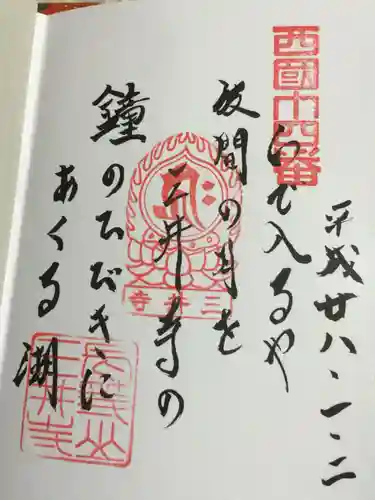 平成廿八・一・二
西國十四番
いで入るや
波間の月を
三井寺の
三井寺
鐘のひびきに
あくる湖
長等山
三井寺